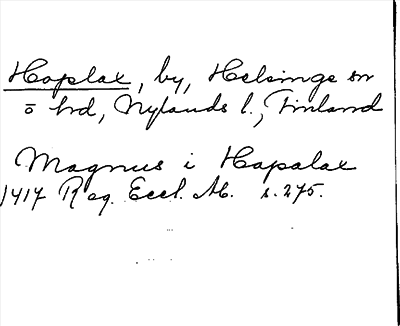 Hoplax, by, Helsinge sn
o hrd, Nylands l., Finland
Magnus i Hapalax
1417 Reg. Eccl. Ab. s. 275.